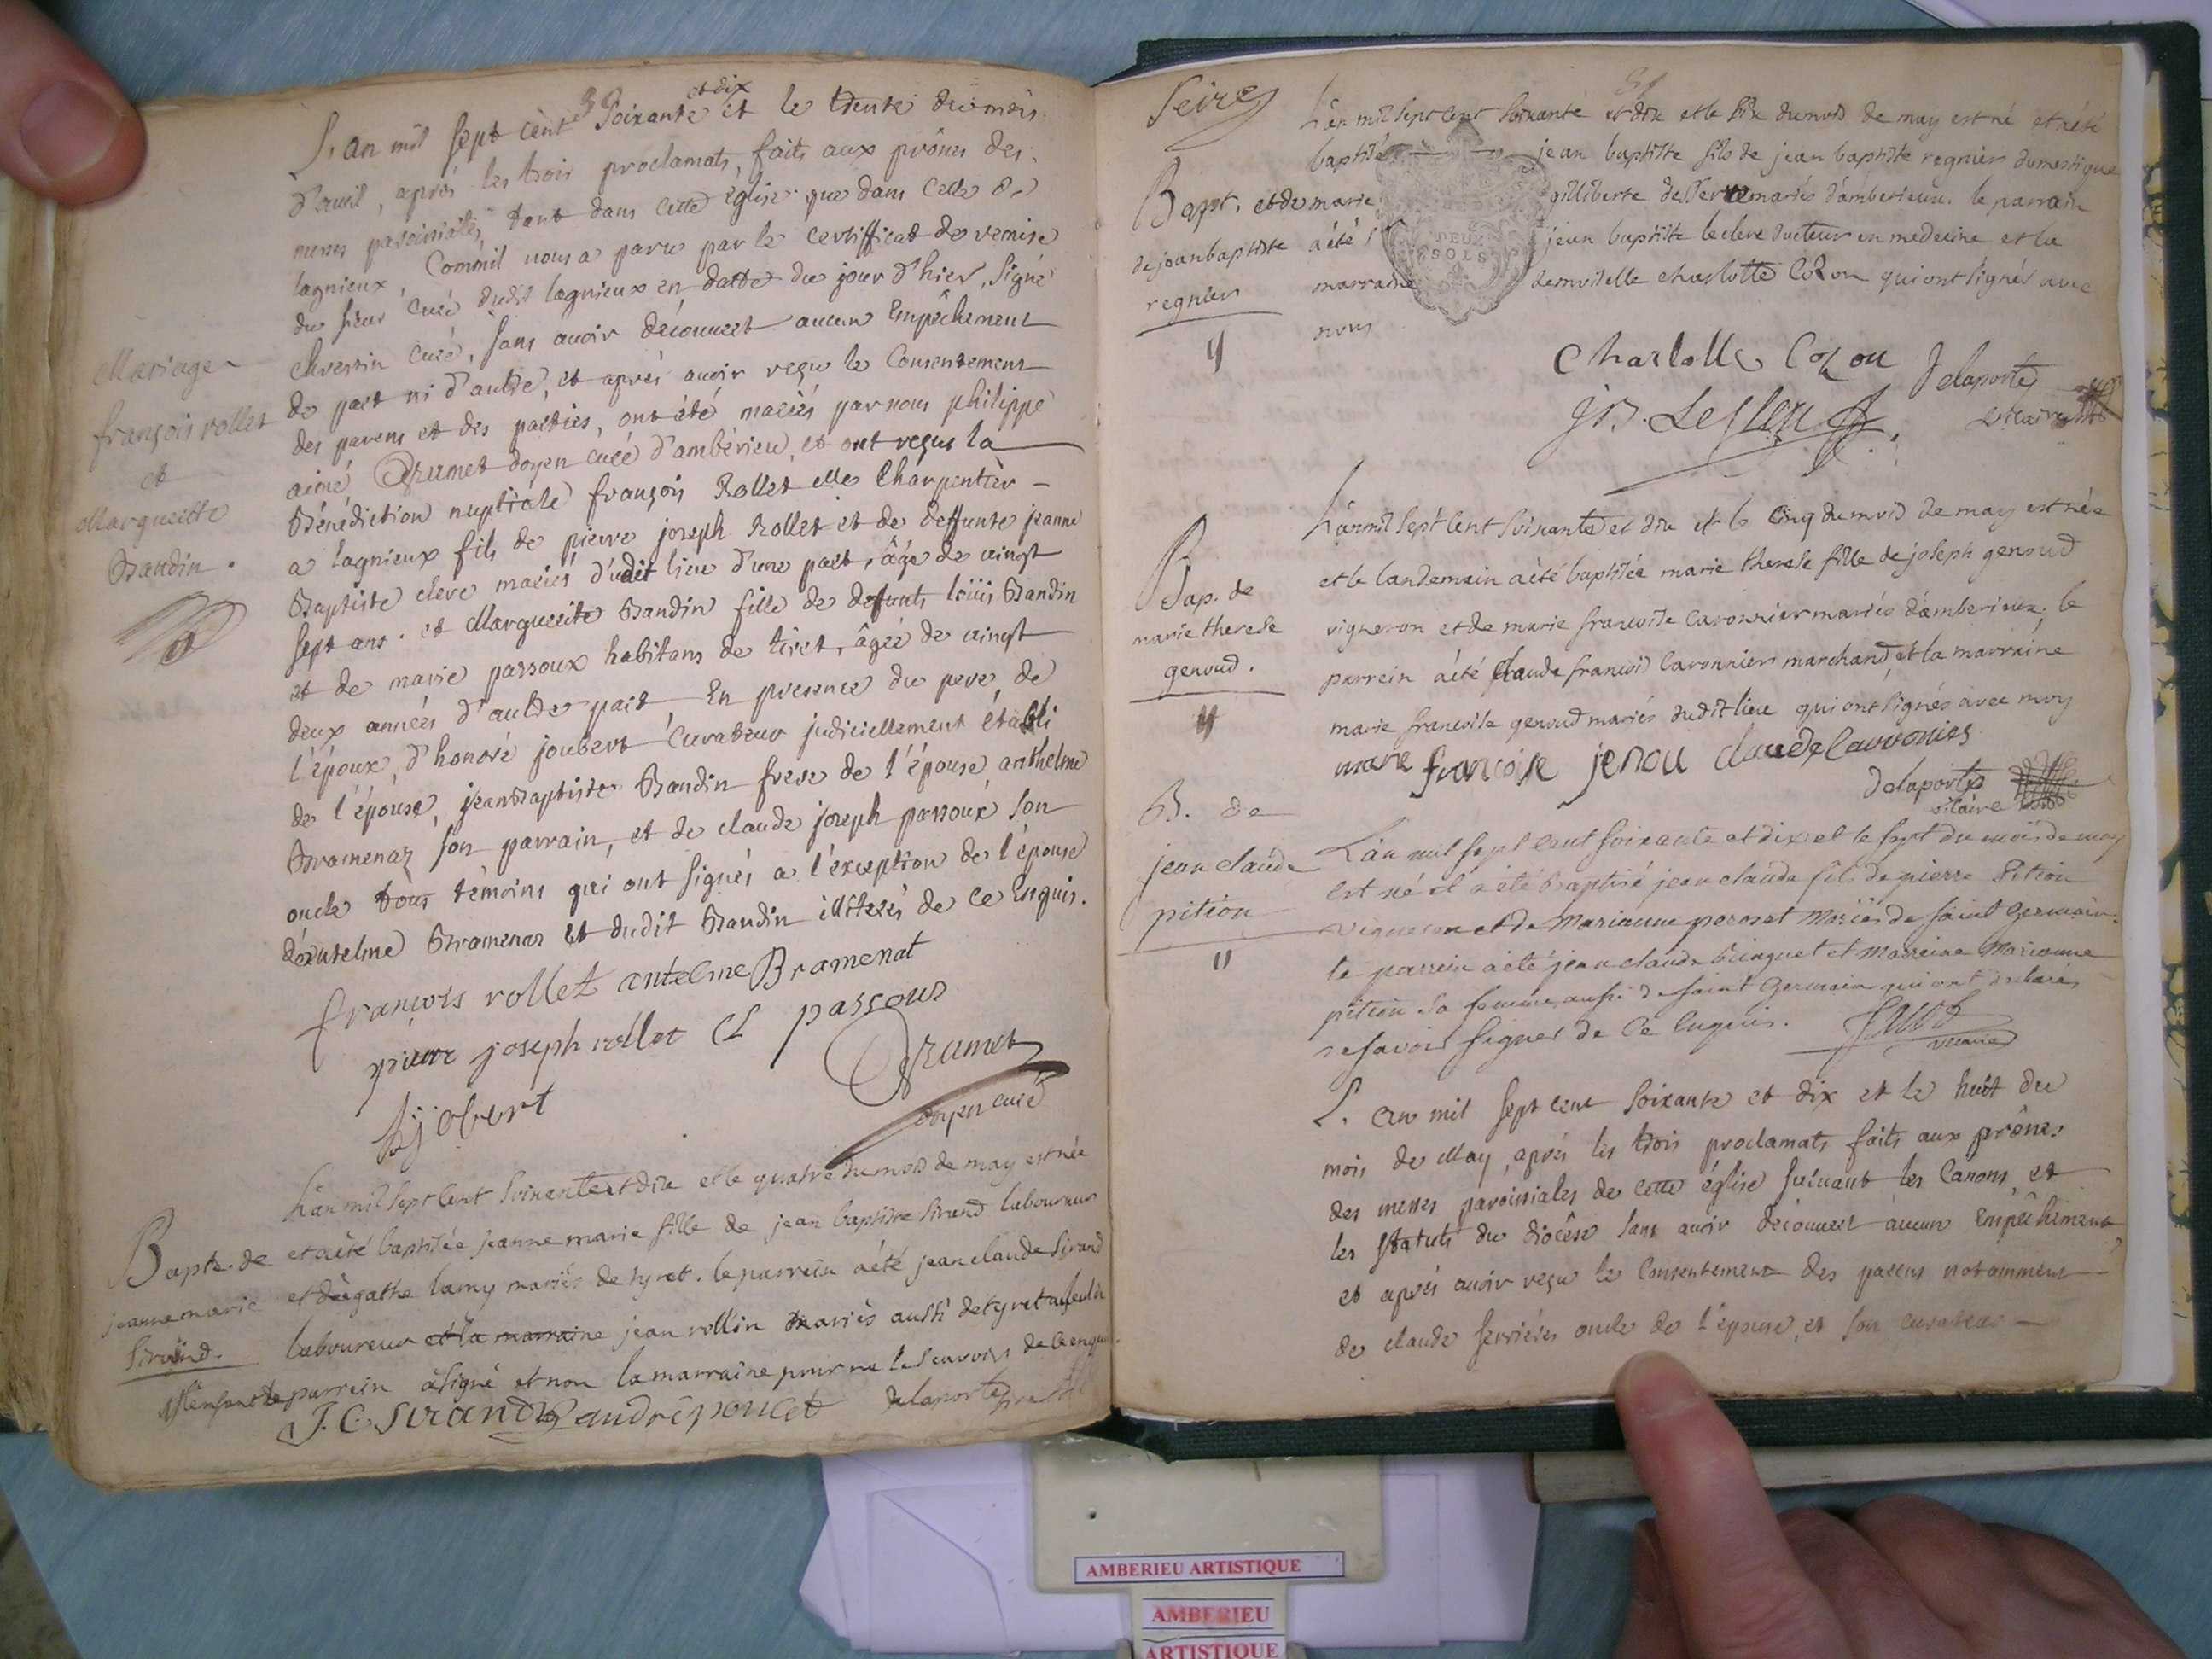 39
et dix
L'an mil sept cent soixante et le trente du mois
d'avril, après les trois proclamats, faits aux prônes des
messes paroissiales, tant dans cette église que dans celle de
lagnieux, Comm'il nous a paru par le certifficat de remise
du sieur curé dudit lagnieux en datte du jour d'hier, signé
curé, sans avoir découvert aucun Empêchement
de part ni d'autre, et après avoir reçu le Consentement
des parens et des parties, ont été mariés par nous philippe
aimé Grumet doyen curé d'ambérieu, et ont reçus la
Bénédiction nuptiale françois Rollet Charpentier
a lagnieux fils de pierre joseph Rollet et de deffunte jeanne
Baptiste cleve mariés dudit lieu d'une part, âgé de vingt
sept ans. et Marguerite Baudin fille de defunts loüis Baudin
et de marie passoux habitans de tiret, âgée de vingt
deux années d'autre part, En presence du pere de
l'époux, d'honoré joubert Curateur judiciellement établi
de l'épouse, jean Baptiste Baudin frere de l'épouse, anthelme
Bramenaz son parrain, et de claude joseph passoux son
oncle tous témoins qui ont signés a l'exception de l'épouse
Bramenaz et dudit Baudin illiterés de ce Enquis.
françois rollet antelme Bramenat
pierre joseph rollet CL passoux
h jobert Grumet
doyen curé
Mariage
françois rollet
et
Marguerite
Baudin.
L'an mil sept cent soixante et dix et le quatre du mois de may est née
et a été baptisée jeanne marie fille de jean baptiste sirand laboureur
et d'agathe lamy mariés de tyret. le parrein a été jean claude sirand
laboureur et la marraine jean rollin mariés aussi de tyret
le parrein a signé et non la marraine pour ne le scavoir de ce enquis.
J. C. Sirand andré poncet delaporte
Bapte. de
jeanne marie
Sirand.
Seize
Bapt.
de jean baptiste
regnier
L'an mil sept cent soixante et dix et le six du mois de may est né et a été
baptisé jean baptiste fils de jean baptiste regnier domestique
et de marie gilliberte desserre mariés d'amberieux. le parrain
a été jean baptiste leclerc docteur en medecine et la
marraine demoiselle charlotte Cozon qui ont signés avec
nous
DEUX
SOLS
Charlotte Cozon Delaporte
JB. Leclerc vicaire
Bap. de
marie therese
genoud.
L'an mil sept cent soixante et dix et le cinq du mois de may est née
et le landemain a été baptisée marie therese fille de joseph genoud
vigneron et de marie francoise caronnier mariés d'amberieux; le
parrein a été claude francois caronnier marchand et la marraine
marie francoise genoud mariés dudit lieu qui ont signés avec moy
marie francoise jenou claude carronier
Delaporte
vicaire
B. de
jean claude
pition
L'an mil sept cent soixante et dix et le sept du mois de may
est né et a été baptisé jean claude fils de pierre Pition
vigneron et de Marianne peroset Mariés de saint Germain.
le parrein a été jean claude Bringuet et Marreine Marianne
pition sa femme aussi de saint Germain qui ont declarés
ne savoir signer de Ce Enquis.
vicaire
L'an mil sept cent soixante et dix et le huit du
mois de May, après les trois proclamats faits aux prônes
des messes paroissiales de cette église suivant les Canons, et
les statuts du diocèse sans avoir découvert aucun Empêchement,
et après avoir reçu le Consentement des parens notamment
de claude ferrières oncle de l'épouse, et son curateur
AMBERIEU ARTISTIQUE
AMBERIEU
ARTISTIQUE